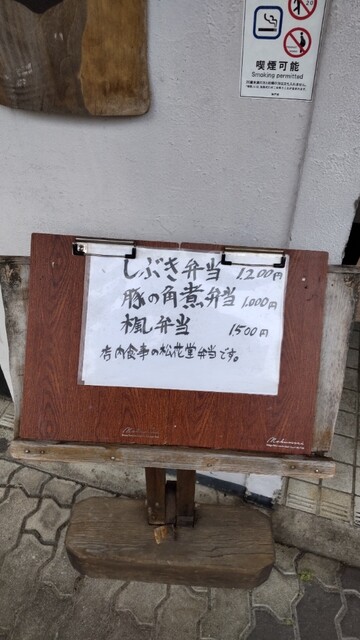 20
喫煙可能
Smoking permitted
しぶき弁当 1,200円
豚の角煮弁当 1,000円
楓弁当 1500円
店内食事の松花堂弁当です。